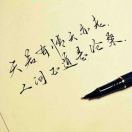 天若有情天亦老，
人间正道是沧桑。